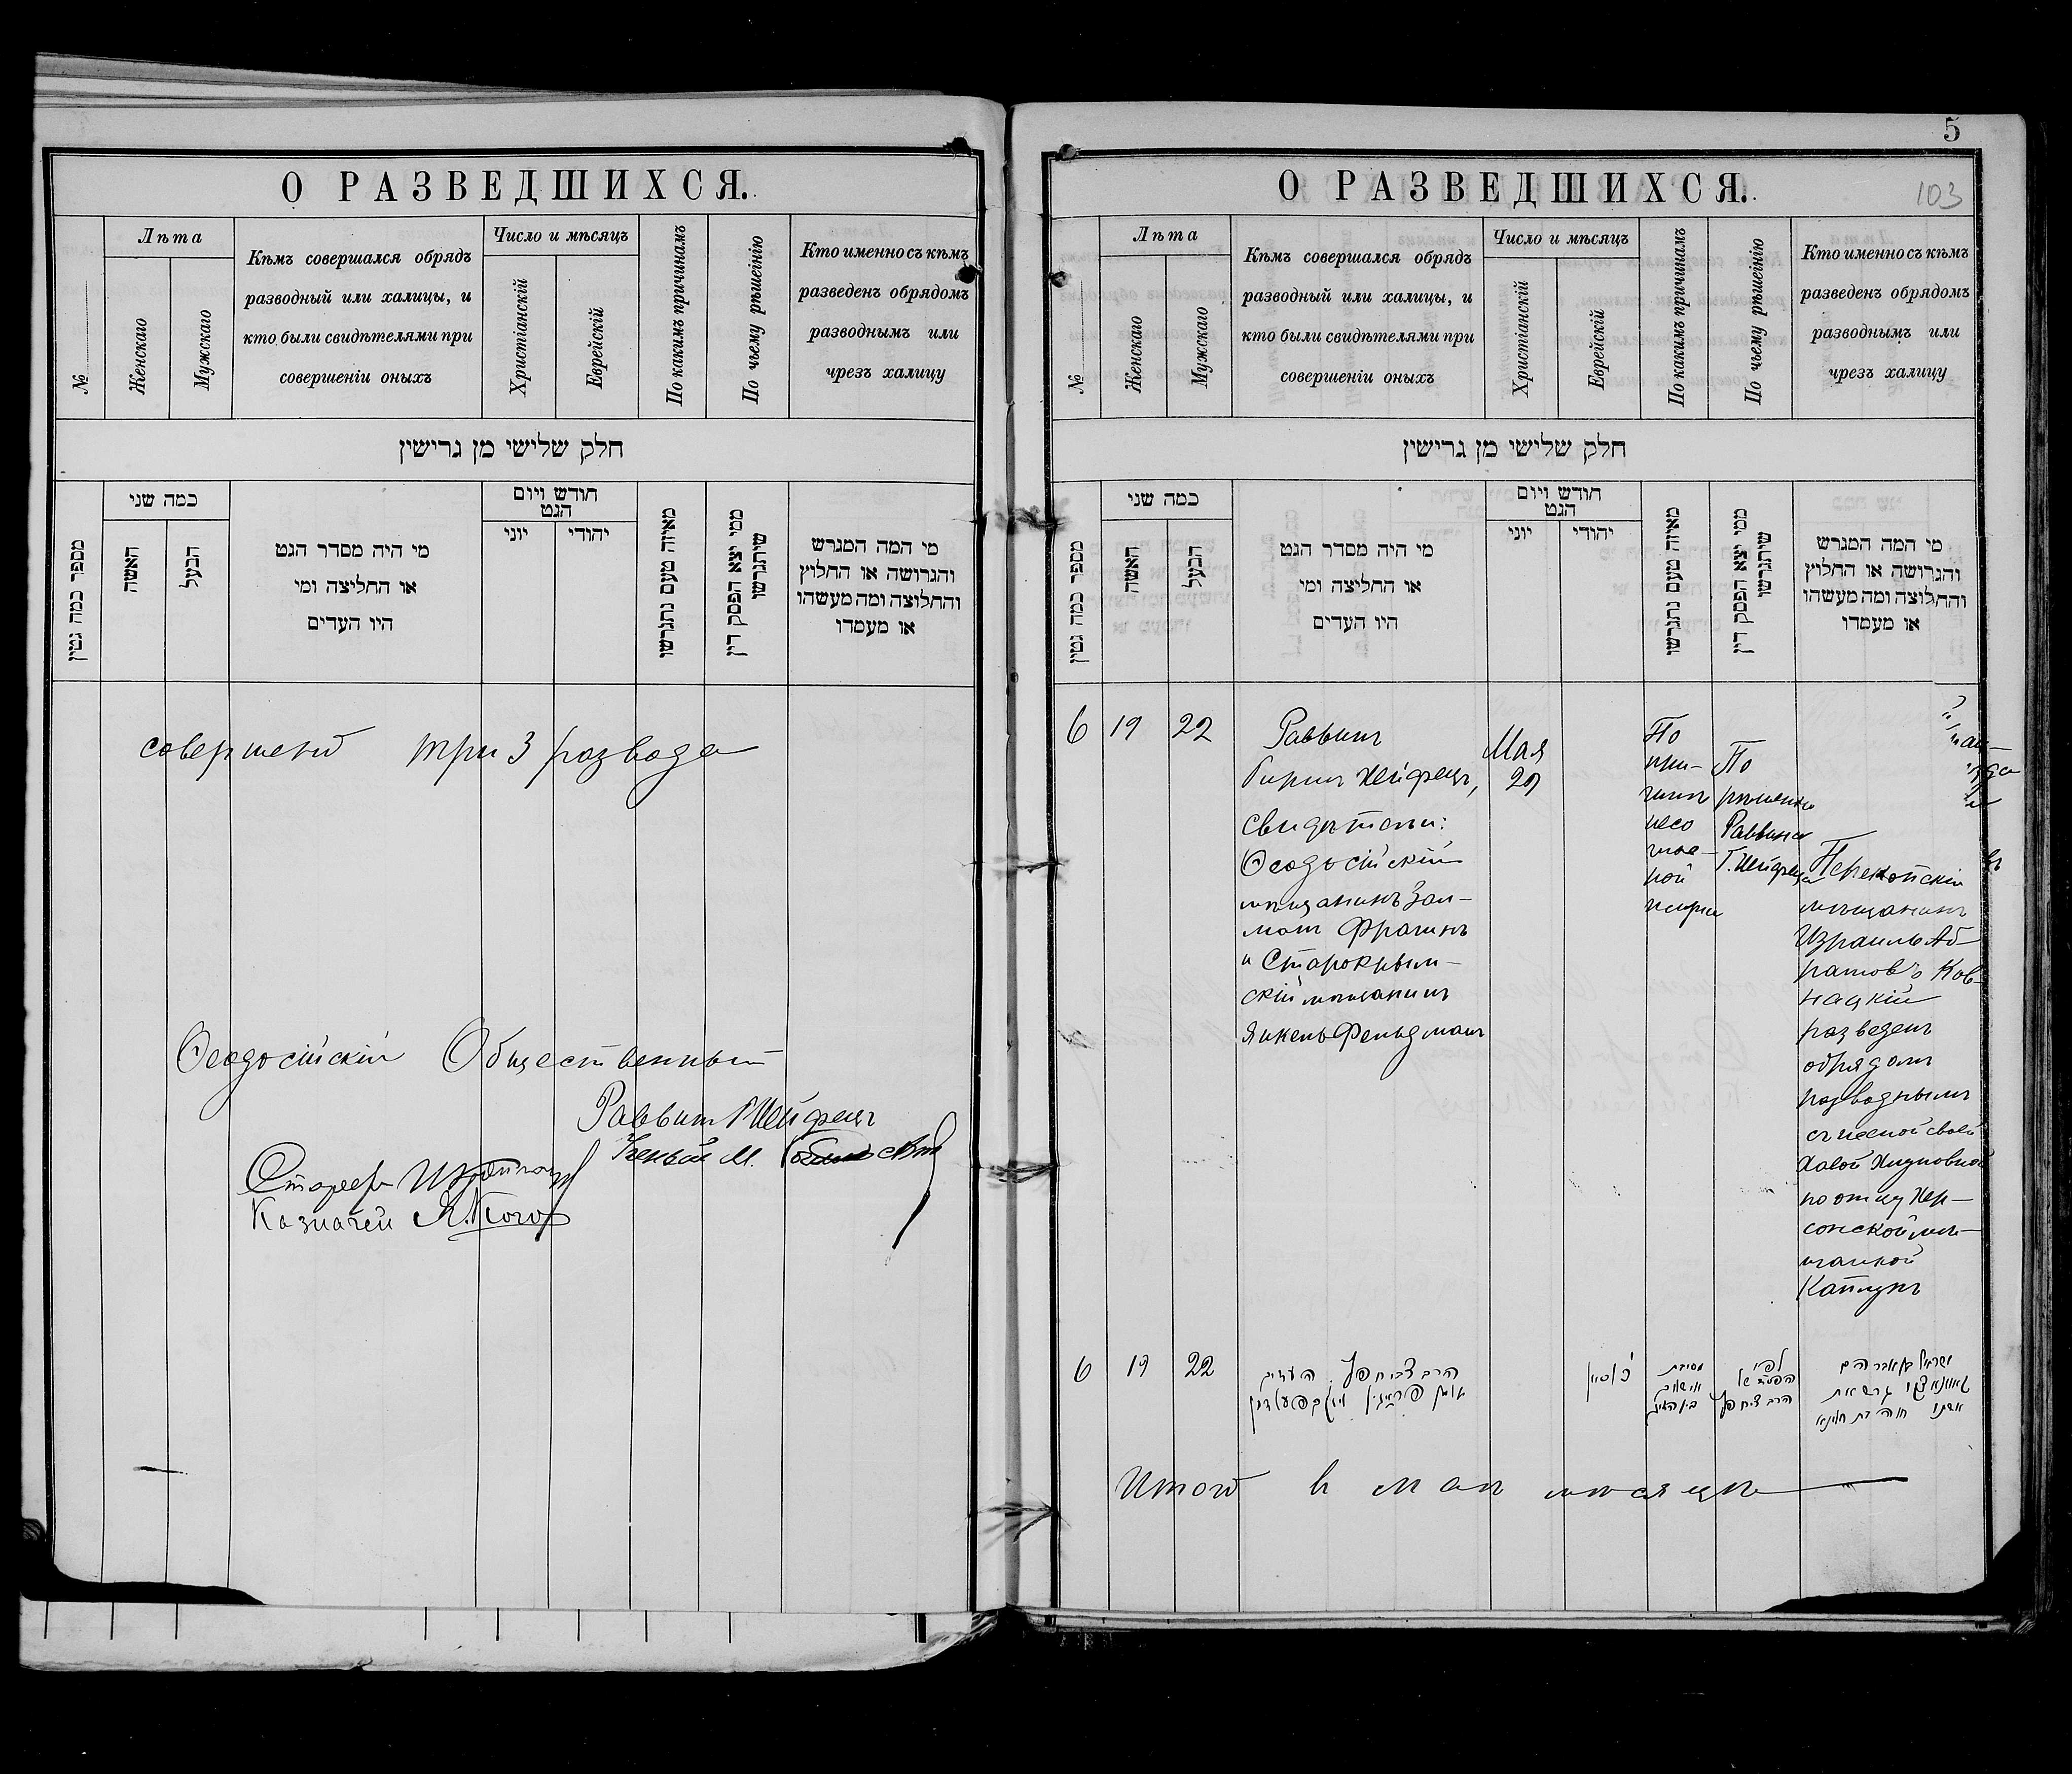 О РАЗВЕДШИХСЯ.
№
Лѣта
Женскаго
Мужскаго
Кѣмъ совершался обрядъ
разводный или халицы, и
кто были свидѣтелями при
совершеніи оныхъ
Число и мѣсяцъ
Христіанскій
Еврейскій
По какимъ причинамъ
По чьему рѣшенію
Кто именно съ кѣмъ
разведенъ обрядомъ
разводнымъ или
чрезъ халицу
חלק שלישי מן גרישין
מספר כמה גטין
כמה שני
האשה
הבעל
מי היה מסדר הגט
או החליצה ומי
היו העדים
חודש ויום
הגט
יוני
יהודי
מאיזה טעם נתגרשו
ממי יצא הפסק דין
שיתגרשו
מי המה המגרש
והגרושה או החלוץ
והחלוצה ומה מעשהו
או מעמדו
совершенъ три 3 развода
Ѳеодосійскій Общественный
Раввинъ Г Хейфецъ
Ученый М.
Староста
Казначей
5
103
О РАЗВЕДШИХСЯ.
№
Лѣта
Женскаго
Мужскаго
Кѣмъ совершался обрядъ
разводный или халицы, и
кто были свидѣтелями при
совершеніи оныхъ
Число и мѣсяцъ
Христіанскій
Еврейскій
По какимъ причинамъ
По чьему рѣшенію
Кто именно съ кѣмъ
разведенъ обрядомъ
разводнымъ или
чрезъ халицу
חלק שלישי מן גרישין
מספר כמה גטין
כמה שני
האשה
הבעל
מי היה מסדר הגט
או החליצה ומי
היו העדים
חודש ויום
הגט
יוני
יהודי
מאיזה טעם נתגרשו
ממי יצא הפסק דין
שיתגרשו
מי המה המגרש
והגרושה או החלוץ
והחלוצה ומה מעשהו
או מעמדו
6
19
22
Раввинъ
Хейфецъ,
свидѣтели:
Ѳеодосійскій
мѣщанинъ Зал-
манъ Фрагинъ
и Старокрым-
скій мѣщанинъ
Янкель Фельдманъ
Мая
29
По
при-
чинѣ
По
рѣшенію
Раввина
Г. Хейфеца
Перекопскій
мѣщанинъ
Израиль Аб
рамовъ Ков-
нацкій
разведенъ
обрядомъ
разводнымъ
съ женой своей
Хавой
по отцу Хер-
сонской мѣ-
щанкой
Капланъ
6
19
22
סיון
לפי
ישראל בן אברהם
אשתו
Итого в маѣ мѣсяцѣ